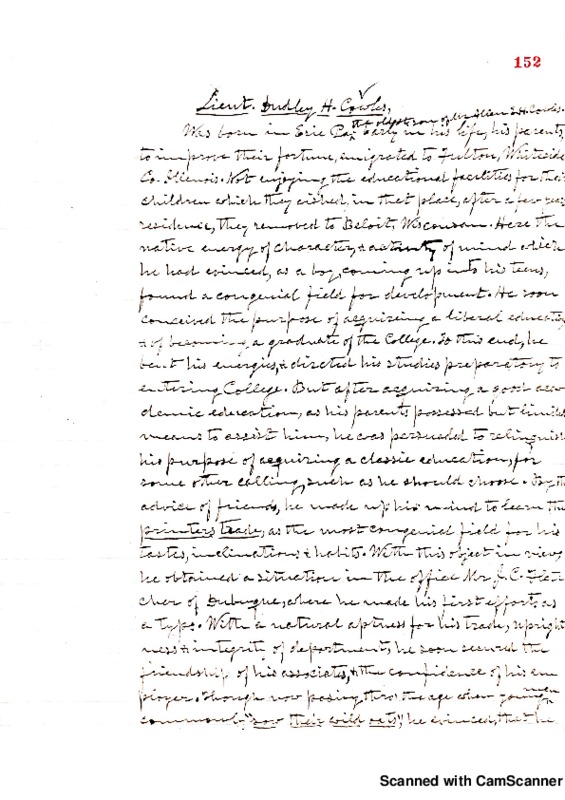 152
Lieut. Dudley H. Cowles,
the oldest son of H. Cowles.
Was born in Erie Pa, early in his life, his parents
to improve their fortune, emigrated to Fulton, Whiteside
Co. Illinois. Not enjoying the educational facilities for their
children which they wished, in that place, after a few years
residence, they removed to Beloit, Wisconsin. Here the
native energy of character, & activity of mind which
he had evinced, as a boy, coming up into his teens,
found a congenial field for development. He soon
conceived the purpose of acquiring a liberal educatio
& of becoming a graduate of the College. To this end, he
bent his energies, & directed his studies preparatory to
entering College. But after acquiring a good aca
demic education, as his parents possessed but limited
means to assist him, he was persuaded to relinquish
his purpose of acquiring a classic education, for
some other calling, such as he should choose. By th
advice of friends, he made up his mind to learn the
printers trade, as the most congenial field for his
tastes, inclinations & habits. With this object in view,
he obtained a situation in the office Mr J. C. Flet
cher of Dubuque, where he made his first efforts as
a typo. With a natural aptness for his trade, upright
ness & integrity of department, he soon secured the
friendship of his associates, & the confidence of his em
ployer. Though now passing thro the age when young men
commonly "sow their wild oats", he evinced, that he
Scanned with CamScanner